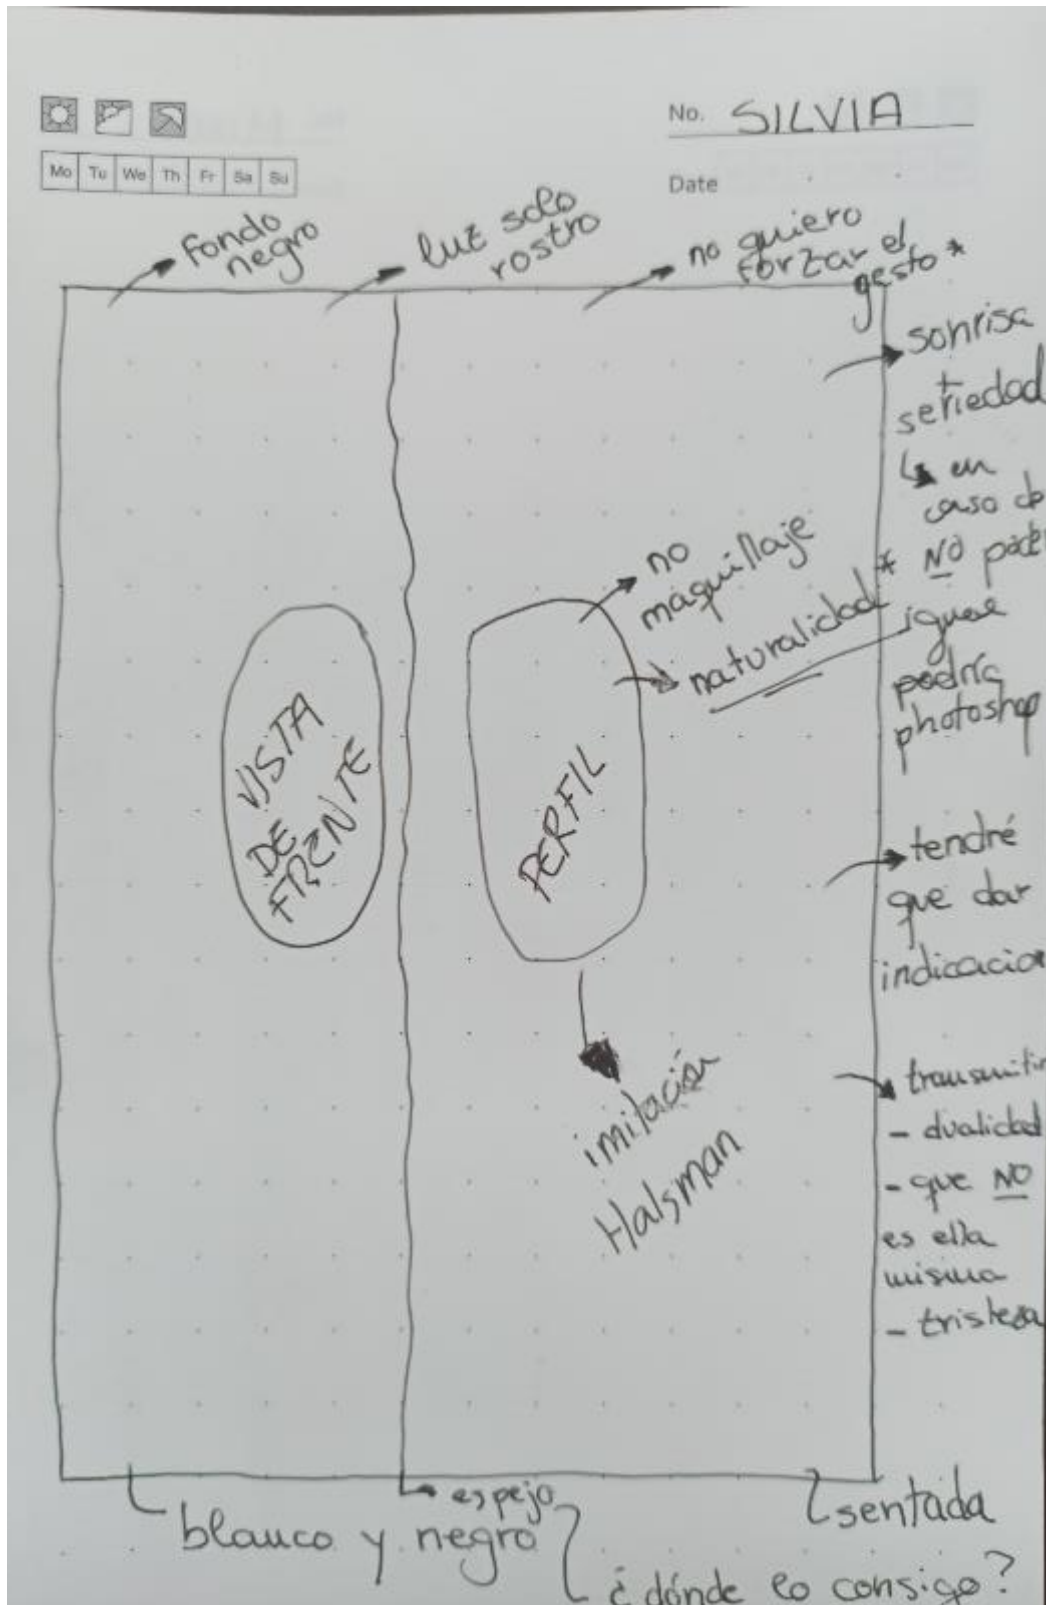 No. SILVIA
Mo Tu We Th Fr Sa Su
Date
fondo
negro
luz solo
rostro
no quiero
forzar el
gesto *
sonrisa
+
seriedad
en
caso de
* NO poder
igual
podría
photoshop
no
maquillaje
naturalidad
VISTA
DE
FRENTE
PERFIL
tendré
que dar
indicacion
imitación
Halsman
transmitir
- dualidad
- que NO
es ella
misma
- tristeza
espejo
sentada
blanco y negro
¿dónde lo consigo?